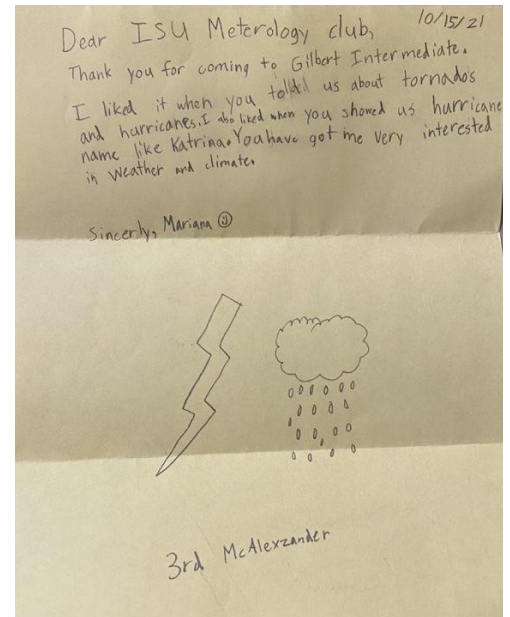 10/15/21
Dear ISU Meterology club,
Thank you for coming to Gilbert Intermediate.
I liked it when you told us about tornados
and hurricanes. I also liked when you showed us hurricane
name like Katrina. You have got me very interested
in weather and climate.
Sincerly, Mariana ☺
3rd McAlexzander